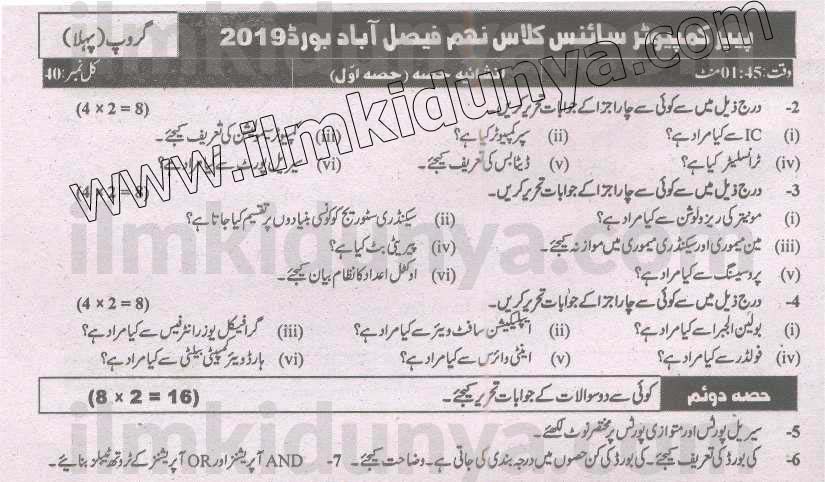 پیپر کمپیوٹر سائنس کلاس نہم فیصل آباد بورڈ 2019 گروپ (پہلا)
وقت: 01:45 منٹ انشائیہ حصہ (حصہ اوّل) کل نمبر: 40
2- درج ذیل میں سے کوئی سے چار اجزا کے جوابات تحریر کریں۔ (4 × 2 = 8)
(i) IC سے کیا مراد ہے؟ (ii) سپر کمپیوٹر کیا ہے؟ (iii) کمپیوٹر کی تعریف کیجئے۔
(iv) ٹرانسلیٹر کیا ہے؟ (v) ڈیٹابس کی تعریف کیجئے۔ (vi) پورٹ سے کیا مراد ہے؟
3- درج ذیل میں سے کوئی سے چار اجزا کے جوابات تحریر کریں۔ (4 × 2 = 8)
(i) مونیٹر کی ریزولوشن سے کیا مراد ہے؟ (ii) سیکنڈری سٹوریج کو کونسی بنیادوں پر تقسیم کیا جاتا ہے؟
(iii) مین میموری اور سیکنڈری میموری میں موازنہ کیجئے۔ (iv) پیریٹی بٹ کیا ہے؟
(v) پروسیسنگ سے کیا مراد ہے؟ (vi) اوکٹل اعداد کا نظام بیان کیجئے۔
4- درج ذیل میں سے کوئی سے چار اجزا کے جوابات تحریر کریں۔ (4 × 2 = 8)
(i) بولین الجبرا سے کیا مراد ہے؟ (ii) ایپلیکیشن سافٹ ویئر سے کیا مراد ہے؟ (iii) گرافیکل یوزر انٹرفیس سے کیا مراد ہے؟
(iv) فولڈر سے کیا مراد ہے؟ (v) اینٹی وائرس سے کیا مراد ہے؟ (vi) ہارڈ ویئر کمپیٹی بیلٹی سے کیا مراد ہے؟
حصہ دوئم کوئی سے دو سوالات کے جوابات تحریر کیجئے۔ (8 × 2 = 16)
5- سیریل پورٹس اور متوازی پورٹس پر مختصر نوٹ لکھئے۔
6- کی بورڈ کی تعریف کیجئے۔ کی بورڈ کی کن حصوں میں درجہ بندی کی جاتی ہے۔ وضاحت کیجئے۔ 7- AND آپریشنز اور OR آپریشنز کے ٹروتھ ٹیبلز بنایئے۔
www.ilmkidunya.com
ilmkidunya.com
ilmkidunya.com
ilmkidunya.com